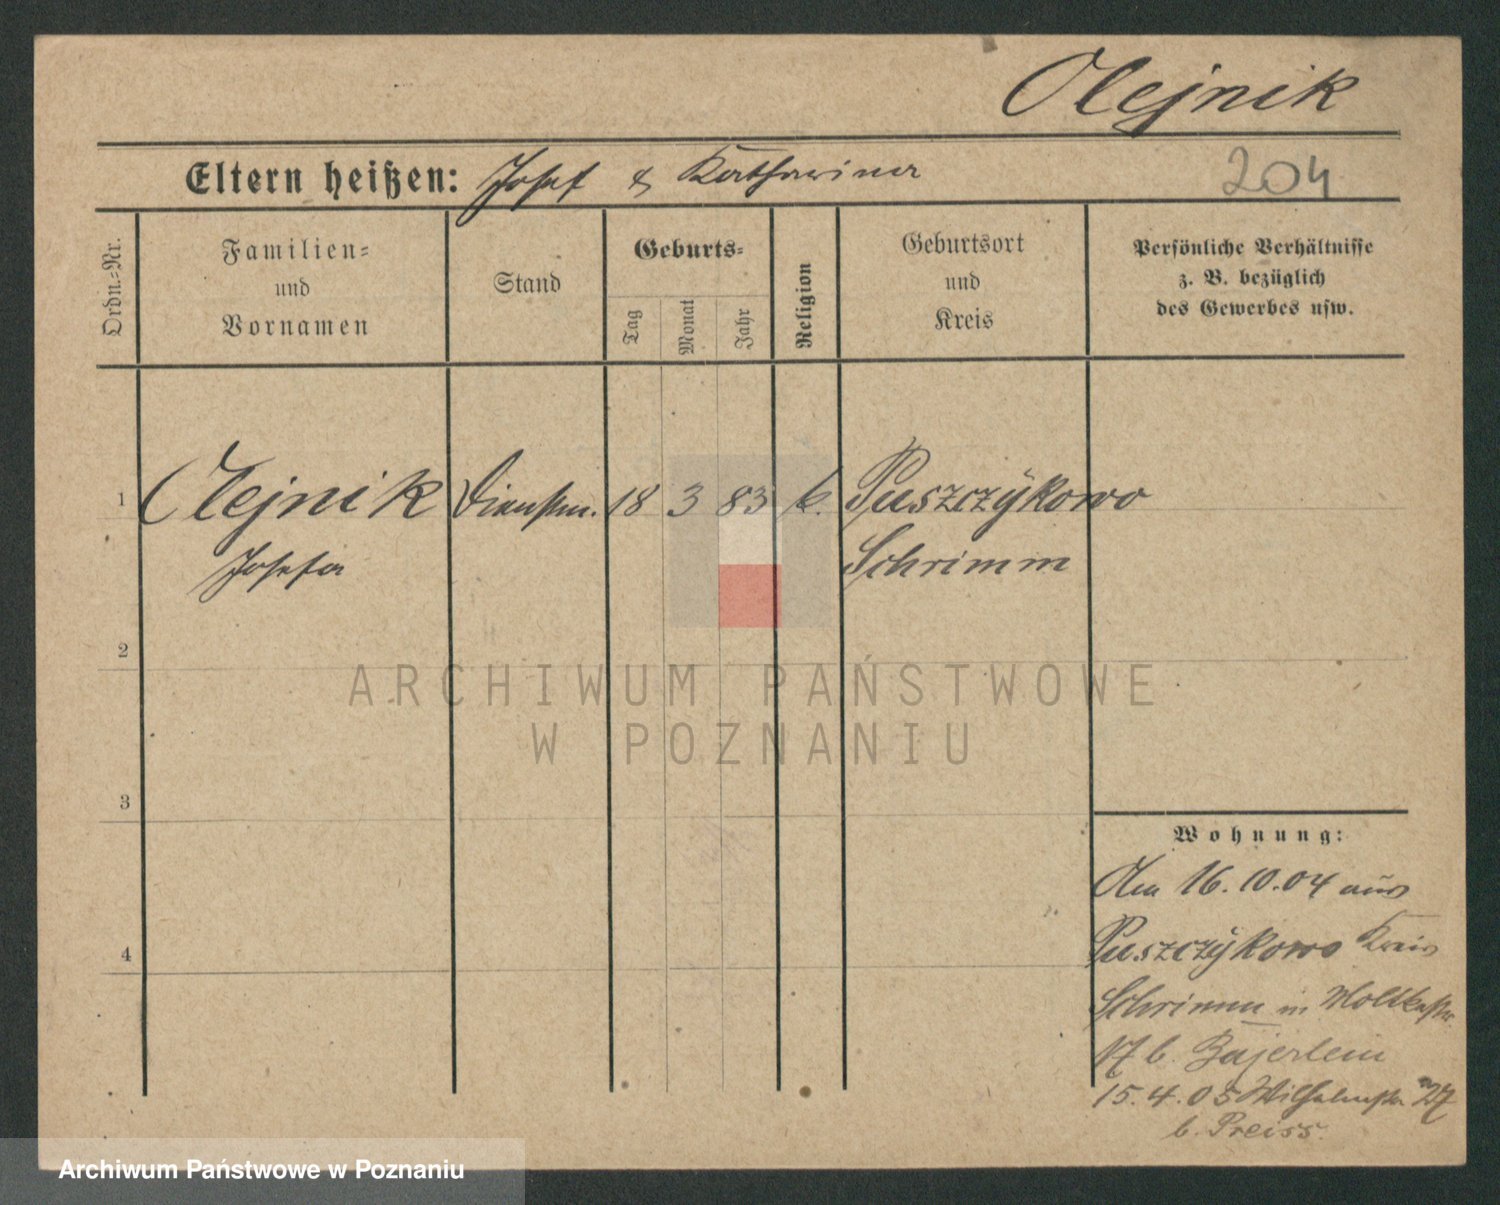 Olejnik
Eltern heißen: Josef & Katharina
204
Ordn.-Nr.
Familien-
und
Vornamen
Stand
Geburts-
Tag
Monat
Jahr
Religion
Geburtsort
und
Kreis
Persönliche Verhältnisse
z. B. bezüglich
des Gewerbes usw.
1 Olejnik Dienstm. 18 3 83 k. Puszczykowo
Josefa Schrimm
2
3
4
ARCHIWUM PAŃSTWOWE
W POZNANIU
Wohnung:
Am 16.10.04 aus
Puszczykowo Kreis
Schrimm in Moltkestr.
17 b. Bajerlein
15.4.05 Wilhelmstr. 27
b. Preiss.
Archiwum Państwowe w Poznaniu